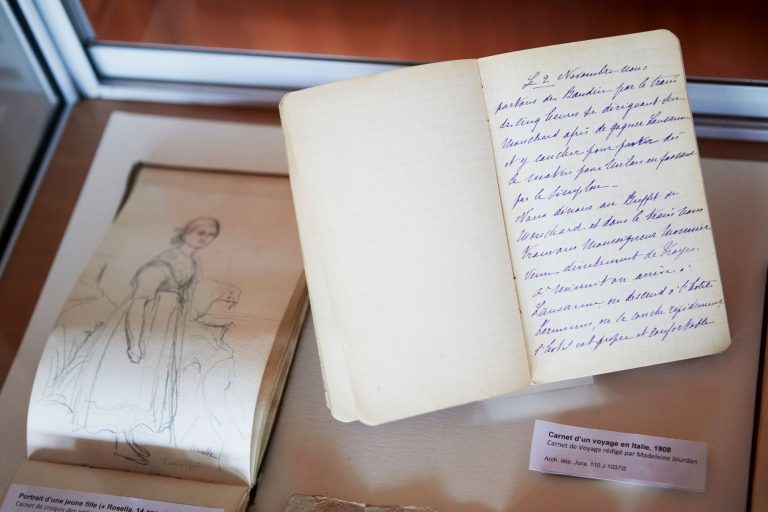 Le 2 Novembre nous
partons de Baudin par le train
de cinq heures se dirigeant sur
Mouchard afin de gagner Lausanne
et y coucher pour partir dès
le matin pour Milan en passant
par le Simplon.
Nous dînons au Buffet de
Mouchard et dans le train nous
trouvons Monseigneur Monnier
venu directement de Troyes.
à minuit on arrive à
Lausanne on descend à l'hôtel
on se couche rapidement,
l'hôtel est propre et confortable
Carnet d'un voyage en Italie, 1908
Carnet de Voyage rédigé par Madeleine Jourdan
Arch. dép. Jura, 110 J 1037/2
Portrait d'une jeune fille (« Rosella, 14
Carnet de croquis